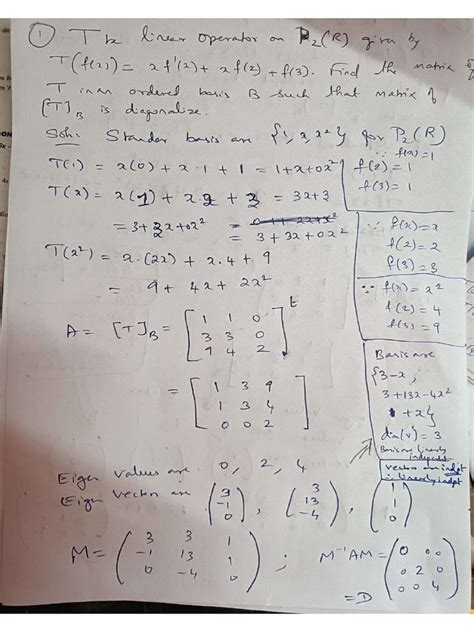 ① T be linear operator on P₂(R) given by
T(f(x)) = x f'(x) + x f(2) + f(3). Find the matrix of
T in an ordered basis B such that matrix of
[T]_B is diagonalize.
Soln: Standar basis are {1, x, x²} for P₂(R)
T(1) = x(0) + x·1 + 1 = 1+x+0x²
T(x) = x(1) + x2 + 3 = 3x+3
= 3+3x+0x² = 3+3x+0x²
T(x²) = x·(2x) + x·4 + 9
= 9 + 4x + 2x²
∵ f(x)=1
f(2)=1
f(3)=1
∵ f(x)=x
f(2)=2
f(3)=3
∵ f(x)=x²
f(2)=4
f(3)=9
A = [T]_B = [1 1 0
3 3 0
9 4 2]^t
= [1 3 9
1 3 4
0 0 2]
Basis are
{3-x,
3+13x-4x²
1+x}
dim(V)=3
Basis are linearly
independent
vector are indpt
∴ linearly indpt
Eigen values are 0, 2, 4
Eigen vector are (3 -1 0), (3 13 -4), (1 1 0)
M = (3 3 1
-1 13 1
0 -4 0) ; M⁻¹AM = (0 0 0
0 2 0
0 0 4)
= D